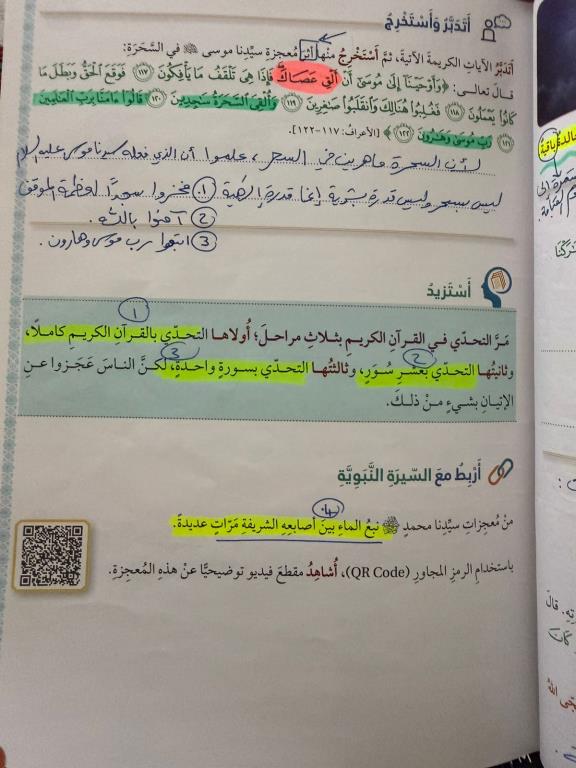 أَتَدَبَّرُ وَأَسْتَخْرِجُ
أَتَدَبَّرُ الآياتِ الكريمةَ الآتيةَ، ثمَّ أَسْتَخْرِجُ منْها أثرَ مُعجزةِ سيِّدِنا موسى ﷺ في السَّحَرَةِ:
قالَ تعالى: ﴿وَأَوْحَيْنَا إِلَىٰ مُوسَىٰ أَنْ أَلْقِ عَصَاكَ ۖ فَإِذَا هِيَ تَلْقَفُ مَا يَأْفِكُونَ ﴿١١٧﴾ فَوَقَعَ الْحَقُّ وَبَطَلَ مَا
كَانُوا يَعْمَلُونَ ﴿١١٨﴾ فَغُلِبُوا هُنَالِكَ وَانقَلَبُوا صَاغِرِينَ ﴿١١٩﴾ وَأُلْقِيَ السَّحَرَةُ سَاجِدِينَ ﴿١٢٠﴾ قَالُوا آمَنَّا بِرَبِّ الْعَالَمِينَ
﴿١٢١﴾ رَبِّ مُوسَىٰ وَهَارُونَ ﴿١٢٢﴾﴾ [الأعراف: ١١٧-١٢٢].
لأن السحرة ماهرين في السحر، علموا أن الذي فعله سيدنا موسى عليه السلام
ليس بسحر وليس قدرة بشرية إنما قدرة إلهية ① فخروا سجداً لعظمة الموقف
② آمنوا بالله.
③ اتبعوا رب موسى وهارون.
أَسْتَزيدُ
①
مَرَّ التحدّي في القرآنِ الكريمِ بثلاثِ مراحلَ؛ أُولاها التحدّي بالقرآنِ الكريمِ كاملًا،
② ③
وثانيتُها التحدّي بعَشْرِ سُوَرٍ، وثالثتُها التحدّي بسورةٍ واحدةٍ، لكنَّ الناسَ عَجَزوا عنِ
الإتيانِ بشيءٍ منْ ذلكَ.
أَرْبِطُ معَ السّيرَةِ النَّبَوِيَّةِ
منْ مُعجِزاتِ سيِّدِنا محمدٍ ﷺ نبعُ الماءِ بينَ أصابعِهِ الشريفةِ مَرّاتٍ عديدةً.
باستخدامِ الرمزِ المجاورِ (QR Code)، أُشاهِدُ مقطعَ فيديو توضيحيًّا عنْ هذهِ المُعجِزةِ.